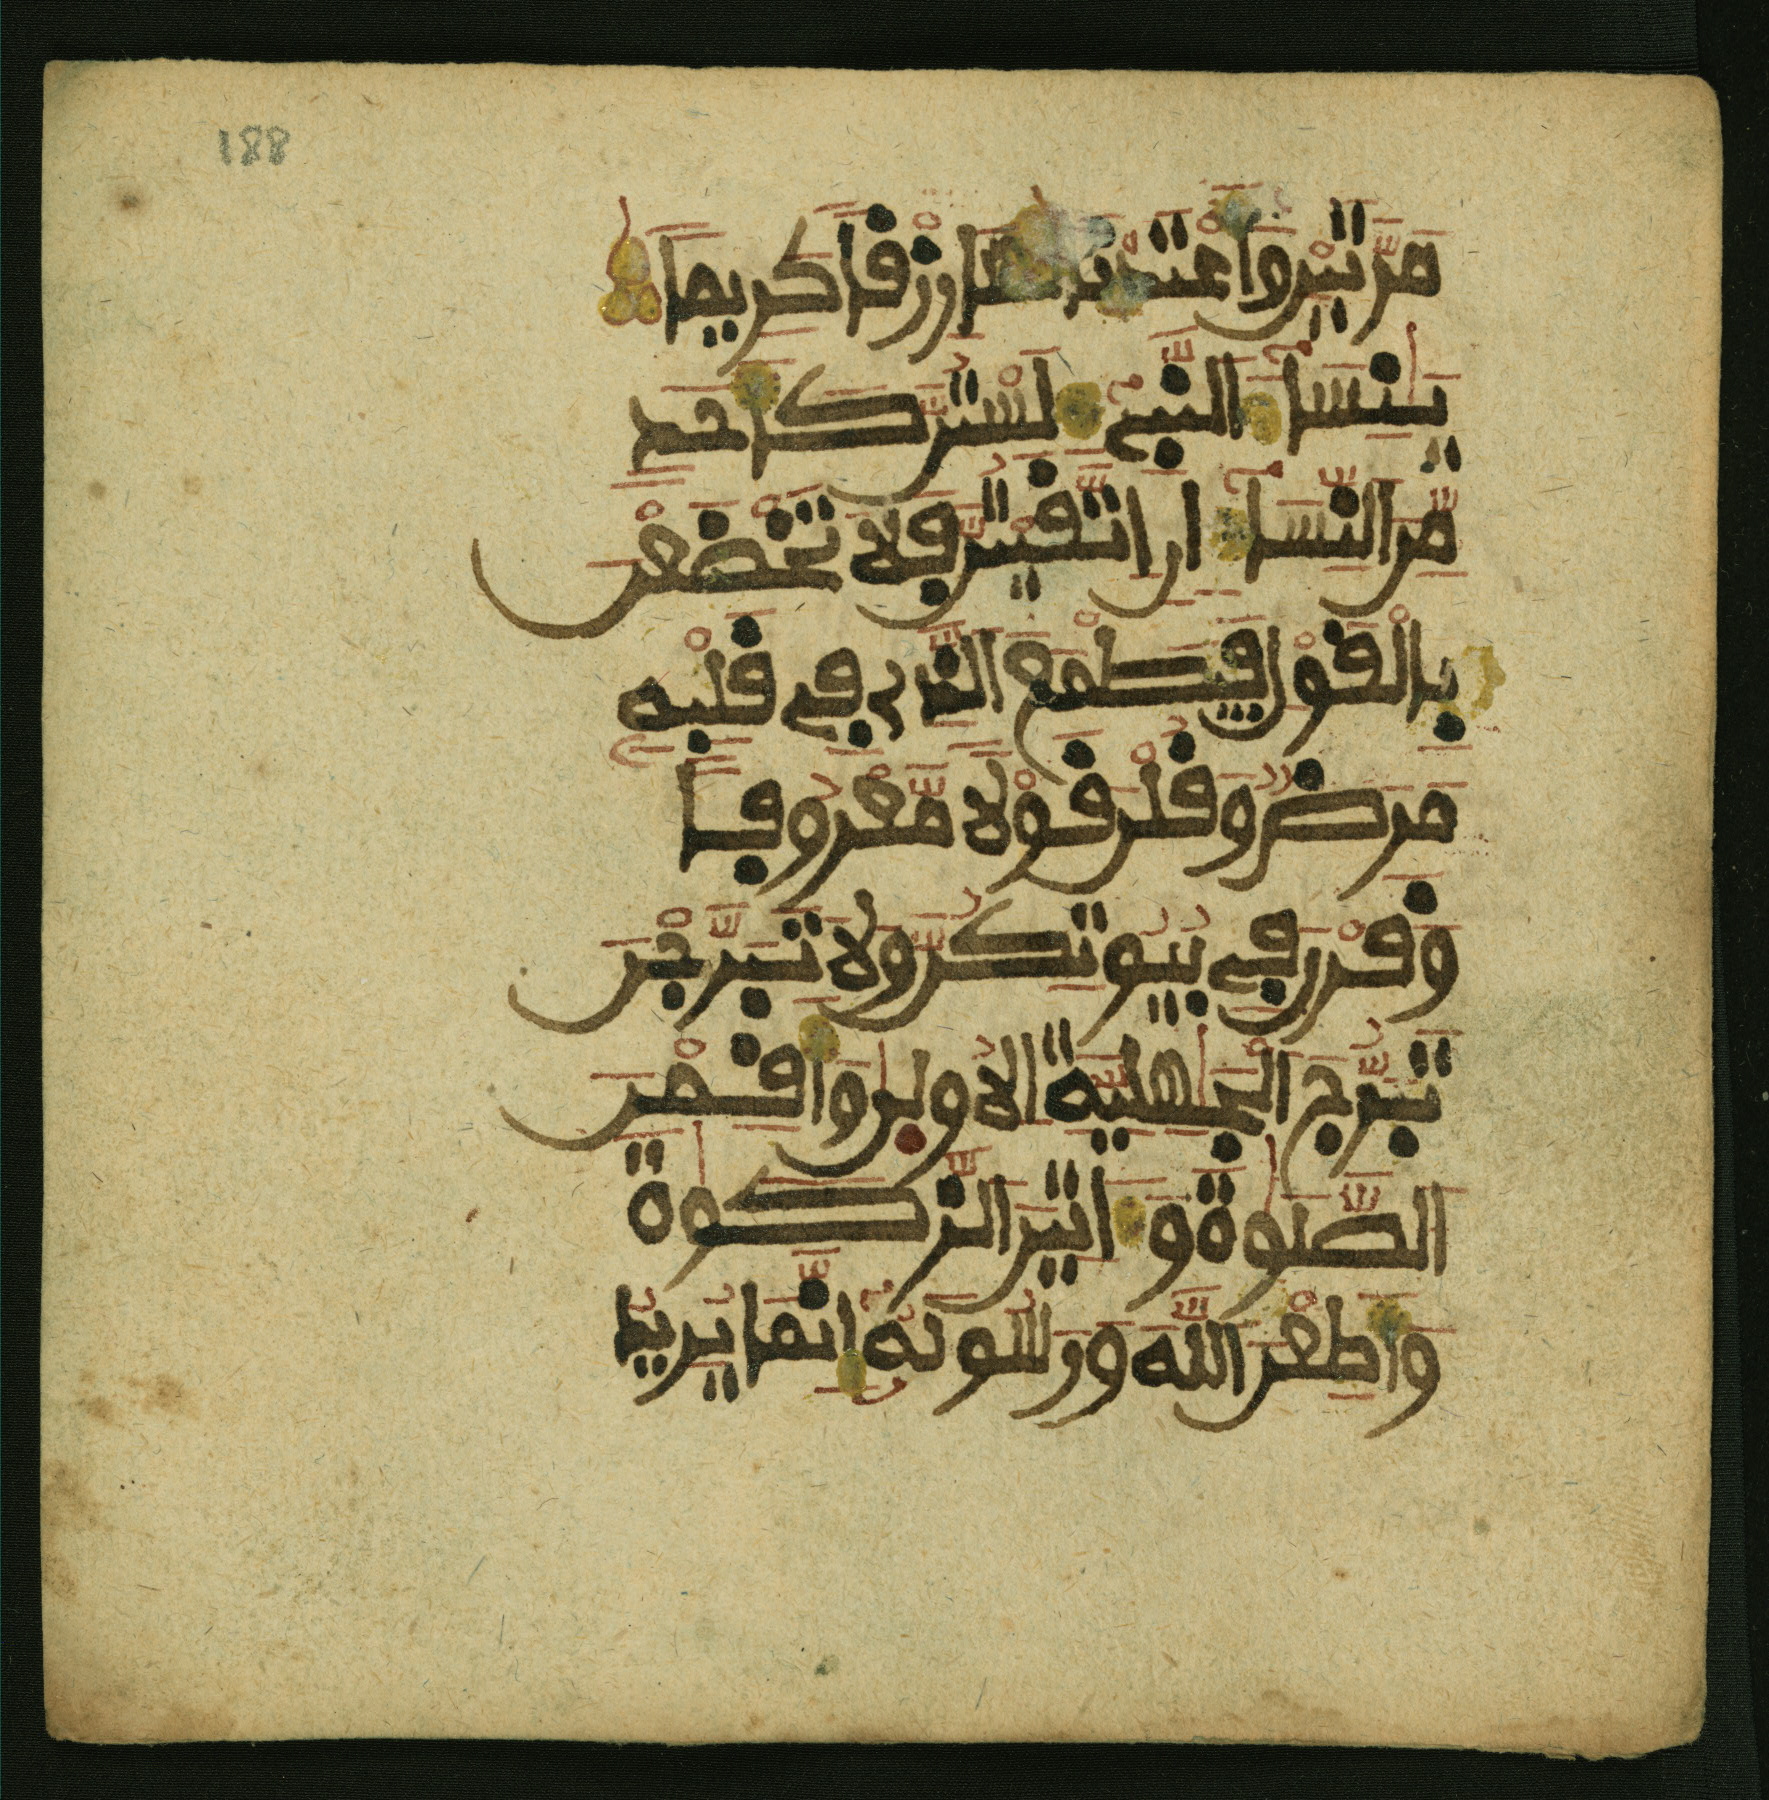 188
مَرَّتَيْنِ وَأَعْتَدْنَا لَهَا رِزْقًا كَرِيمًا
يَٰنِسَآءَ النَّبِيءِ لَسْتُنَّ كَأَحَدٍ
مِّنَ النِّسَآءِ انِ اتَّقَيْتُنَّ فَلَا تَخْضَعْنَ
بِالْقَوْلِ فَيَطْمَعَ الَّذِي فِي قَلْبِهِ
مَرَضٌ وَقُلْنَ قَوْلًا مَّعْرُوفًا
وَقَرْنَ فِي بُيُوتِكُنَّ وَلَا تَبَرَّجْنَ
تَبَرُّجَ الْجَٰهِلِيَّةِ الُاولَىٰ وَأَقِمْنَ
الصَّلَوٰةَ وَءَاتِينَ الزَّكَوٰةَ
وَأَطِعْنَ اللَّهَ وَرَسُولَهُ إِنَّمَا يُرِيدُ